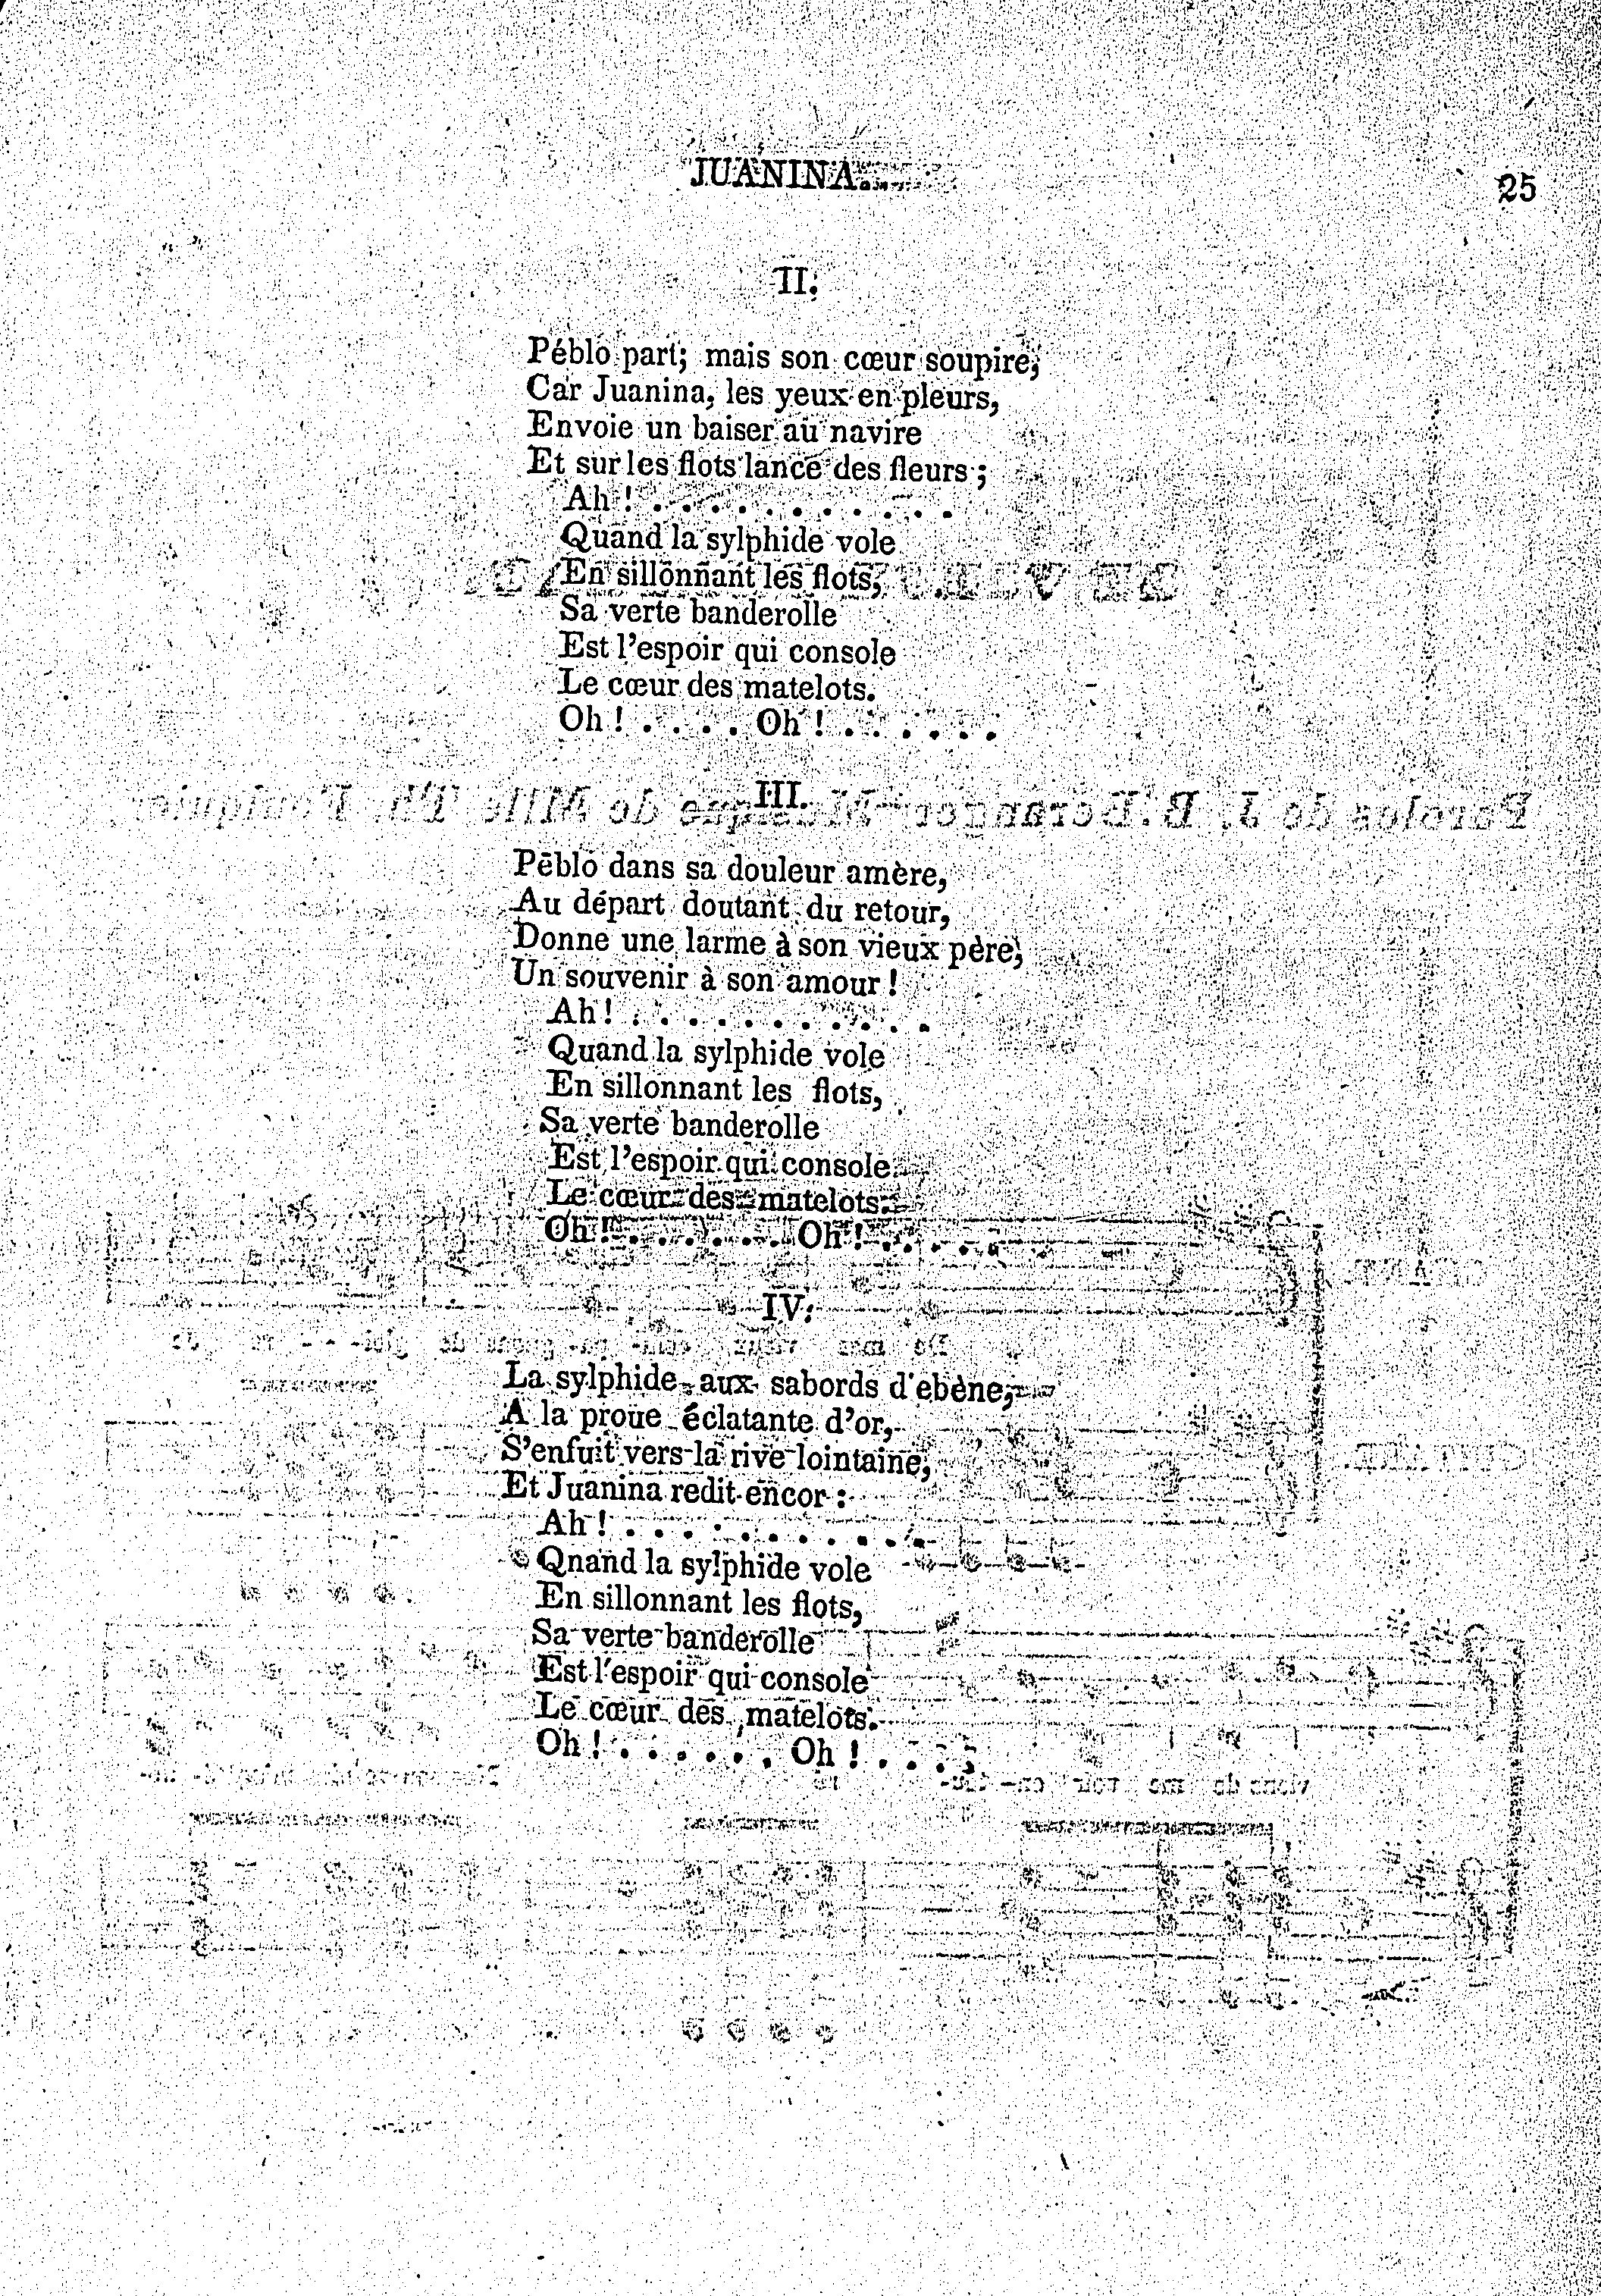 JUANINA.
25
II.
Péblo part; mais son cœur soupire,
Car Juanina, les yeux en pleurs,
Envoie un baiser au navire
Et sur les flots lance des fleurs ;
Ah ! . . . . . . . . . . .
Quand la sylphide vole
En sillonnant les flots,
Sa verte banderolle
Est l'espoir qui console
Le cœur des matelots.
Oh ! . . . . Oh ! . . . . . .
III.
Péblo dans sa douleur amère,
Au départ doutant du retour,
Donne une larme à son vieux père,
Un souvenir à son amour !
Ah ! . . . . . . . . . . .
Quand la sylphide vole
En sillonnant les flots,
Sa verte banderolle
Est l'espoir qui console
Le cœur des matelots.
Oh ! . . . . . . Oh ! . . . . .
IV.
La sylphide aux sabords d'ebène,
A la proue éclatante d'or,
S'enfuit vers la rive lointaine,
Et Juanina redit encor :
Ah ! . . . . . . . . . . .
Qnand la sylphide vole
En sillonnant les flots,
Sa verte banderolle
Est l'espoir qui console
Le cœur des matelots.
Oh ! . . . . . . Oh ! . . . .